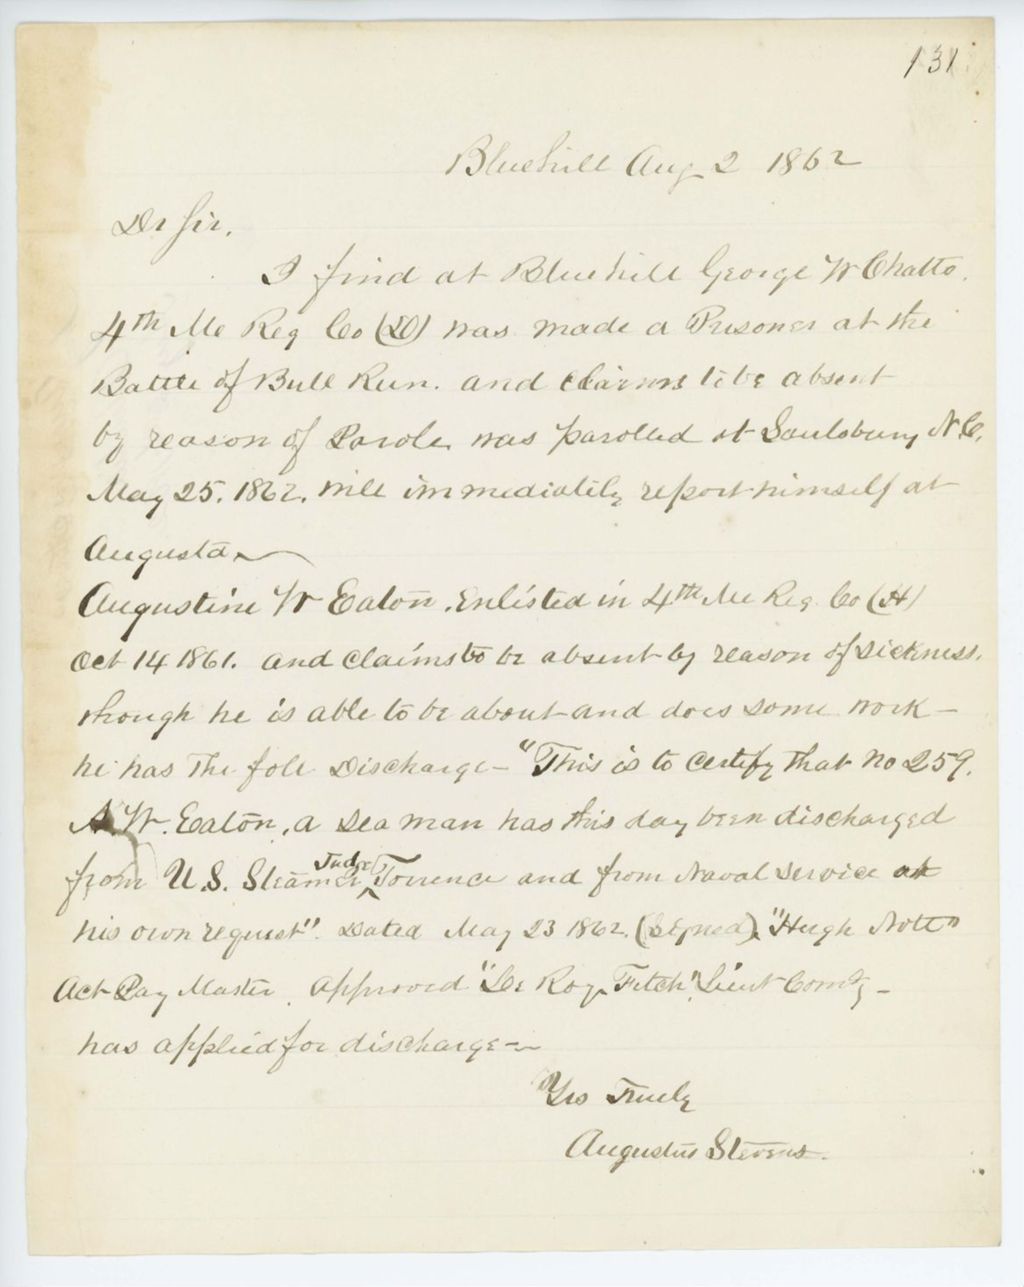 131
Bluehill Aug 2 1862
Dr Sir,
I find at Bluehill George W Chatto.
4th Me Reg Co () was made a Prisoner at the
Battle of Bull Run. and claims to be absent
by reason of Parole. was parolled at Saulsbury N.C.
May 25. 1862. will immediately report himself at
Augusta
Augustine W Eaton. Enlisted in 4th Me Reg. Co (H)
Oct 14 1861. and claims to be absent by reason of sickness.
though he is able to be about and does some work –
he has the foll Discharge – "This is to certify that No 259.
A. W. Eaton, a seaman has this day been discharged
from U.S. Steamer Judge Torrence and from Naval Service at
his own request". Dated May 23 1862. (Signed). "Hugh Nott"
Act Pay Master. approved "Le Roy Fitch", Lieut Comdg –
has applied for discharge –
Yrs Truely
Augustus Stevens.